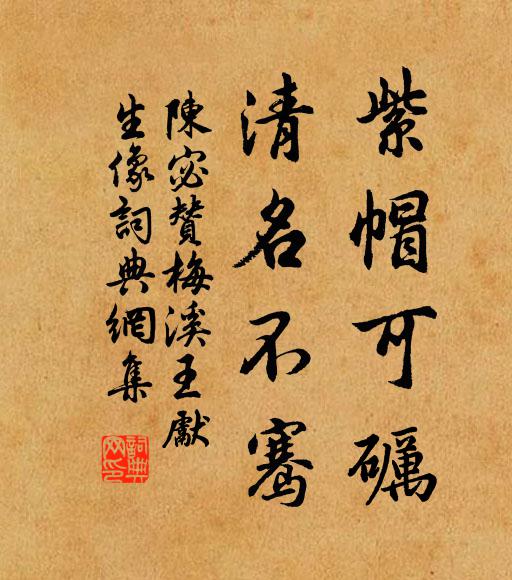 紫帽可礪
清名不騫
陳宓贊梅溪王獻
生像詞典網集
詞典网印